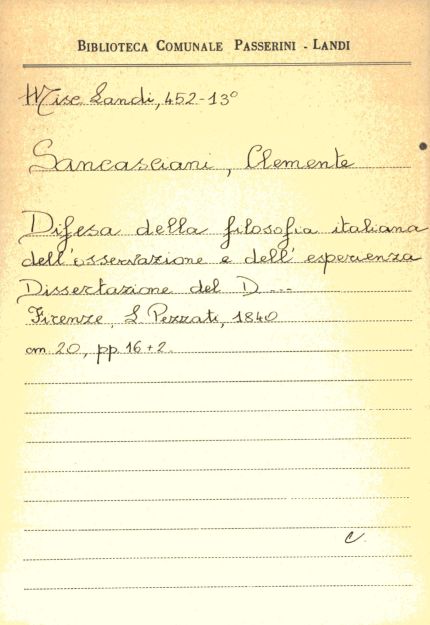 BIBLIOTECA COMUNALE PASSERINI - LANDI
Misc Landi, 452-13°
Sancasciani, Clemente
Difesa della filosofia italiana
dell'osservazione e dell'esperienza
Dissertazione del D....
Firenze, L. Pezzati, 1840
cm 20, pp. 16+2.
c